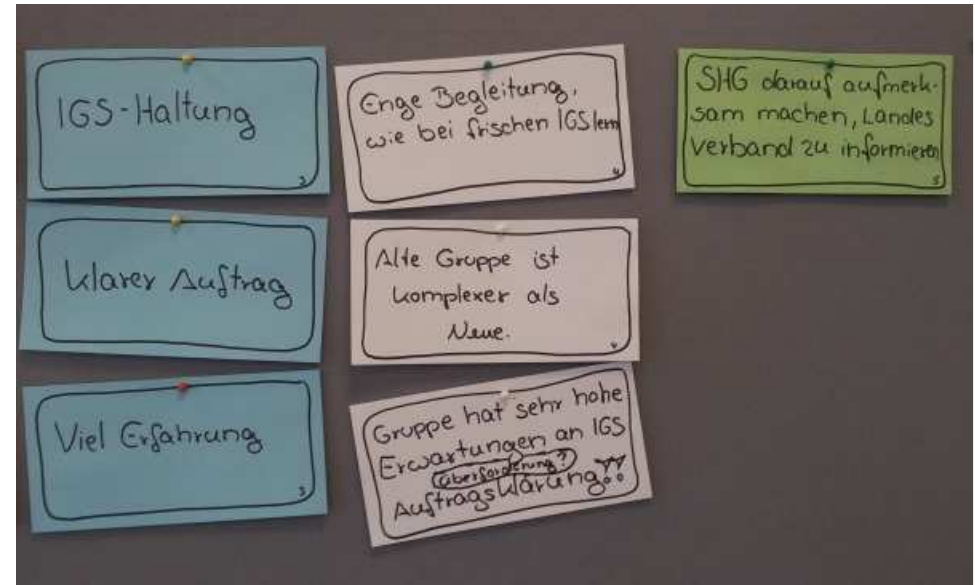 IGS-Haltung
2
Klarer Auftrag
Viel Erfahrung
3
Enge Begleitung,
wie bei frischen IGSlern
4
Alte Gruppe ist
komplexer als
Neue.
4
Gruppe hat sehr hohe
Erwartungen an IGS
(Überforderung?)
Auftragsklärung!!
SHG darauf aufmerk-
sam machen, Landes
verband zu informieren
5